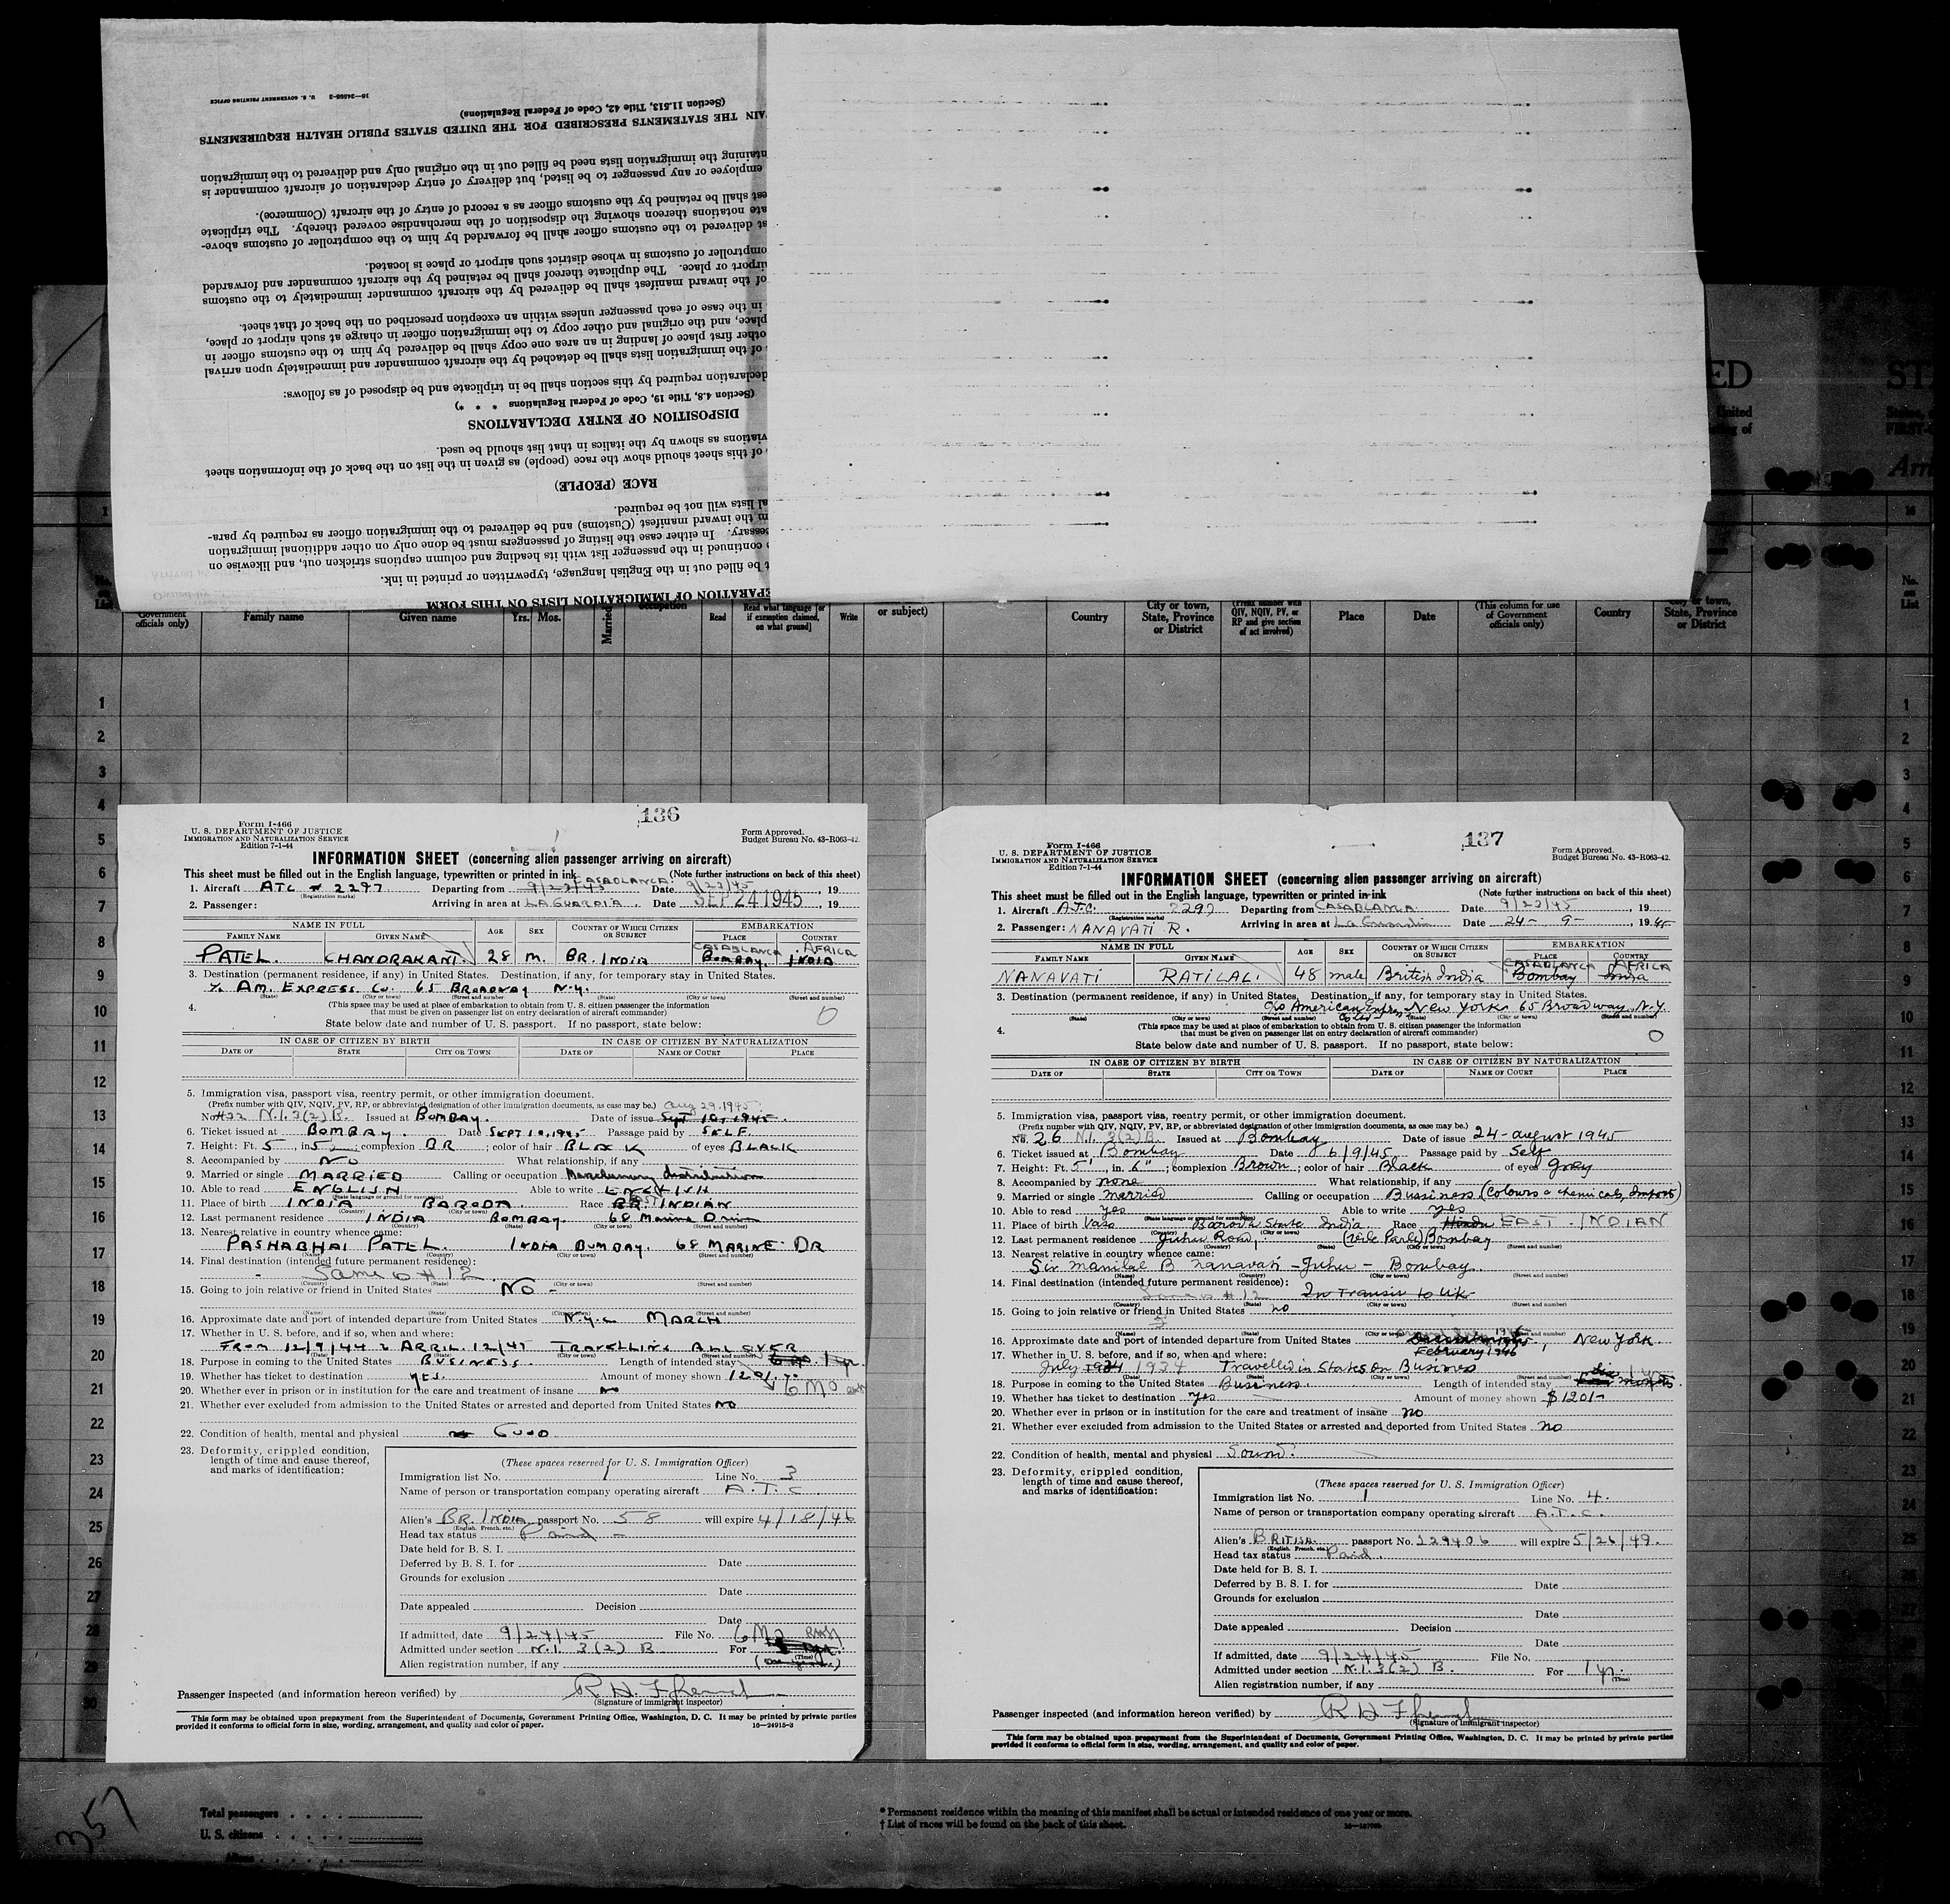 16—24598-2 U. S. GOVERNMENT PRINTING OFFICE
(Section 11.513, Title 42, Code of Federal Regulations)
THE STATEMENTS PRESCRIBED FOR THE UNITED STATES PUBLIC HEALTH REQUIREMENTS
the immigration lists need be filled out in the original only and delivered to the immigration
employee or any passenger to be listed, but delivery of entry declaration of aircraft commander is
shall be retained by the customs officer as a record of entry of the aircraft (Commerce).
notations thereon showing the disposition of the merchandise covered thereby. The triplicate
delivered to the customs officer shall be forwarded by him to the comptroller of customs above-
comptroller of customs in whose district such airport or place is located.
airport or place. The duplicate thereof shall be retained by the aircraft commander and forwarded
of the inward manifest shall be delivered by the aircraft commander immediately to the customs
in the case of each passenger unless within an exception prescribed on the back of that sheet.
place, and the original and other copy to the immigration officer in charge at such airport or place,
other first place of landing in an area one copy shall be delivered by him to the customs officer in
of the immigration lists shall be detached by the aircraft commander and immediately upon arrival
declaration required by this section shall be in triplicate and be disposed of as follows:
(Section 4.8, Title 19, Code of Federal Regulations * * *)
DISPOSITION OF ENTRY DECLARATIONS
as shown by the italics in that list should be used.
of this sheet should show the race (people) as given in the list on the back of the information sheet
RACE (PEOPLE)
lists will not be required.
the inward manifest (Customs) and be delivered to the immigration officer as required by para-
In either case the listing of passengers must be done only on other additional immigration
continued in the passenger list with its heading and column captions stricken out, and likewise on
be filled out in the English language, typewritten or printed in ink.
OF IMMIGRATION LISTS ON THIS FORM
Government officials only)
Family name
Given name
Yrs. Mos.
Married
Read
Read what language [or if exemption claimed, on what ground]
Write
or subject)
Country
City or town, State, Province or District
QIV, NQIV, PV, or RP and give section of act involved)
Place
Date
(This column for use of Government officials only)
Country
State, Province or District
No. on List
136
Form I-466
U. S. DEPARTMENT OF JUSTICE
IMMIGRATION AND NATURALIZATION SERVICE
Edition 7-1-44
Form Approved.
Budget Bureau No. 43-R063-42.
INFORMATION SHEET (concerning alien passenger arriving on aircraft)
This sheet must be filled out in the English language, typewritten or printed in ink (Note further instructions on back of this sheet)
1. Aircraft ATC # 2297 Departing from CASABLANCA 9/23/45 Date 9/23/45, 19
(Registration marks)
2. Passenger: Arriving in area at LA GUARDIA Date SEP 24 1945, 19
NAME IN FULL AGE SEX COUNTRY OF WHICH CITIZEN OR SUBJECT EMBARKATION
FAMILY NAME GIVEN NAME PLACE COUNTRY
CASABLANCA AFRICA
PATEL CHANDRAKANT 28 M. BR. INDIA BOMBAY INDIA
3. Destination (permanent residence, if any) in United States. Destination, if any, for temporary stay in United States.
% AM. EXPRESS Co. 65 BROADWAY N.Y.
(State) (City or town) (Street and number) (State) (City or town) (Street and number)
4. (This space may be used at place of embarkation to obtain from U. S. citizen passenger the information
that must be given on passenger list on entry declaration of aircraft commander)
State below date and number of U. S. passport. If no passport, state below:
0
IN CASE OF CITIZEN BY BIRTH IN CASE OF CITIZEN BY NATURALIZATION
DATE OF STATE CITY OR TOWN DATE OF NAME OF COURT PLACE
5. Immigration visa, passport visa, reentry permit, or other immigration document.
(Prefix number with QIV, NQIV, PV, RP, or abbreviated designation of other immigration documents, as case may be.) Aug 29, 1945
No. #22 N.I. 3(2) B. Issued at BOMBAY. Date of issue Sept 10, 1945.
6. Ticket issued at BOMBAY. Date SEPT 10, 1945 Passage paid by SELF
7. Height: Ft. 5, in. 5½; complexion BR; color of hair BLACK of eyes BLACK
8. Accompanied by NO What relationship, if any
9. Married or single MARRIED Calling or occupation Machinery distribution
10. Able to read ENGLISH Able to write ENGLISH
(State language or ground for exemption)
11. Place of birth INDIA BARODA. Race EAST BR. INDIAN
12. Last permanent residence INDIA BOMBAY. 68 Marine Drive
13. Nearest relative in country whence came:
PASHABHAI PATEL. INDIA BOMBAY. 68 MARINE DR
14. Final destination (intended future permanent residence):
Same as #12
15. Going to join relative or friend in United States NO
16. Approximate date and port of intended departure from United States N.Y.C. MARCH.
17. Whether in U. S. before, and if so, when and where:
FROM 12/9/44 to APRIL. 12/45 TRAVELLING ALL OVER
18. Purpose in coming to the United States BUSINESS. Length of intended stay 1 yr.
19. Whether has ticket to destination YES. Amount of money shown 1201.
6 MO
20. Whether ever in prison or in institution for the care and treatment of insane no
21. Whether ever excluded from admission to the United States or arrested and deported from United States NO
22. Condition of health, mental and physical GOOD
23. Deformity, crippled condition, length of time and cause thereof, and marks of identification:
(These spaces reserved for U. S. Immigration Officer)
Immigration list No. 1 Line No. 3
Name of person or transportation company operating aircraft A.T.C.
Alien's BR. INDIA passport No. 58 will expire 4/18/46
(English, French, etc.)
Head tax status Paid
Date held for B. S. I.
Deferred by B. S. I. for Date
Grounds for exclusion
Date
Date appealed Decision
Date
If admitted, date 9/24/45 File No. 6 Mo
Admitted under section N.I. 3(2) B For
(Time)
Alien registration number, if any (one year)
Passenger inspected (and information hereon verified) by
(Signature of immigrant inspector)
This form may be obtained upon prepayment from the Superintendent of Documents, Government Printing Office, Washington, D. C. It may be printed by private parties
provided it conforms to official form in size, wording, arrangement, and quality and color of paper. 16—24915-3
137
Form I-466
U. S. DEPARTMENT OF JUSTICE
IMMIGRATION AND NATURALIZATION SERVICE
Edition 7-1-44
Form Approved.
Budget Bureau No. 43-R063-42.
INFORMATION SHEET (concerning alien passenger arriving on aircraft)
This sheet must be filled out in the English language, typewritten or printed in ink (Note further instructions on back of this sheet)
1. Aircraft A.T.C. 2297 Departing from CASABLANCA Date 9/23/45, 19
(Registration marks)
2. Passenger: NANAVATI R. Arriving in area at La Guardia Date 24- 9-, 1945
NAME IN FULL AGE SEX COUNTRY OF WHICH CITIZEN OR SUBJECT EMBARKATION
FAMILY NAME GIVEN NAME PLACE COUNTRY
CASABLANCA AFRICA
NANAVATI RATILAL. 48 male British India Bombay India
3. Destination (permanent residence, if any) in United States. Destination, if any, for temporary stay in United States.
c/o American Express New York 65 Broadway, N.Y.
(State) (City or town) (Street and number) (State) (City or town) (Street and number)
4. (This space may be used at place of embarkation to obtain from U. S. citizen passenger the information
that must be given on passenger list on entry declaration of aircraft commander)
State below date and number of U. S. passport. If no passport, state below:
0
IN CASE OF CITIZEN BY BIRTH IN CASE OF CITIZEN BY NATURALIZATION
DATE OF STATE CITY OR TOWN DATE OF NAME OF COURT PLACE
5. Immigration visa, passport visa, reentry permit, or other immigration document.
(Prefix number with QIV, NQIV, PV, RP, or abbreviated designation of other immigration documents, as case may be.)
No. 26 N.I. 3(2) B. Issued at Bombay Date of issue 24-august 1945
6. Ticket issued at Bombay Date 6/9/45 Passage paid by Self
7. Height: Ft. 5', in. 6"; complexion Brown; color of hair Black of eyes Grey
8. Accompanied by none What relationship, if any
9. Married or single married Calling or occupation Bussiness (Colours & chemicals, Import)
10. Able to read yes Able to write yes
(State language or ground for exemption)
11. Place of birth Vaso Baroda State India Race Hindu EAST INDIAN
12. Last permanent residence Juhu Road, (Vile Parle) Bombay
13. Nearest relative in country whence came:
Sir Manilal B Nanavati - Juhu - Bombay
14. Final destination (intended future permanent residence):
Same as #12 In Transit to UK
15. Going to join relative or friend in United States no
16. Approximate date and port of intended departure from United States New York.
February 1946
17. Whether in U. S. before, and if so, when and where:
July 1934 1934 Travelled in States on Business
18. Purpose in coming to the United States Business. Length of intended stay six months 1 yr
19. Whether has ticket to destination yes Amount of money shown $1201-
20. Whether ever in prison or in institution for the care and treatment of insane no
21. Whether ever excluded from admission to the United States or arrested and deported from United States no
22. Condition of health, mental and physical Sound.
23. Deformity, crippled condition, length of time and cause thereof, and marks of identification:
(These spaces reserved for U. S. Immigration Officer)
Immigration list No. 1 Line No. 4.
Name of person or transportation company operating aircraft A.T.C.
Alien's BRITISH passport No. 229406 will expire 5/26/49.
(English, French, etc.)
Head tax status Paid.
Date held for B. S. I.
Deferred by B. S. I. for Date
Grounds for exclusion
Date
Date appealed Decision
Date
If admitted, date 9/24/45 File No.
Admitted under section N.I. 3(2) B. For 1 yr.
(Time)
Alien registration number, if any
Passenger inspected (and information hereon verified) by
(Signature of immigrant inspector)
This form may be obtained upon prepayment from the Superintendent of Documents, Government Printing Office, Washington, D. C. It may be printed by private parties
provided it conforms to official form in size, wording, arrangement, and quality and color of paper.
357
Total passengers
U. S. citizens
Aliens
* Permanent residence within the meaning of this manifest shall be actual or intended residence of one year or more.
† List of races will be found on the back of this sheet.